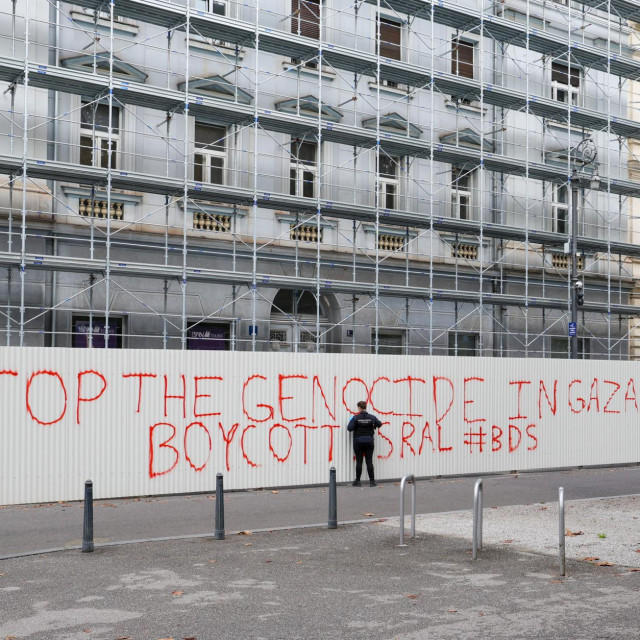 TOP THE GENOCIDE IN GAZA
BOYCOTT SRAL #BDS